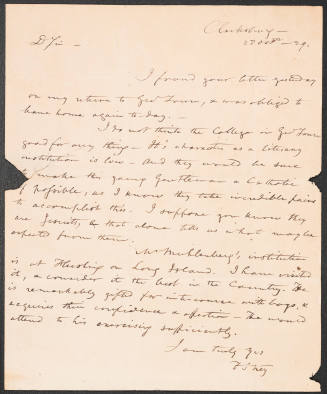 Clarksburg -
28 Octr - 29.
D Sir -
I found your letter yesterday
on my return to Geo Town, & was obliged to
leave home again to-day. -
I do not think the College in Geo Town
good for any thing - It's character as a literary
institution is low - And they would be sure
to make the young Gentleman a Catholic
if possible, as I know they take incredible pains
to accomplish this. I suppose you know they
are Jesuits, & that alone tells us what may be
expected from them.
Mr Muhlenberg's institution
is at Flushing on Long Island. I have visited
it, & consider it the best in the Country. He
is remarkably gifted for intercourse with boys, &
acquires their confidence & affection - He would
attend to his exercising sufficiently.
I am truly Yrs
F S Key